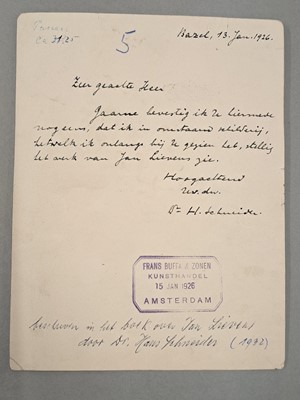 5
Bazel, 13. Jan. 1926.
Zeer geachte Heer
Gaarne bevestig ik U hiermede
nog eens, dat ik in omstaand schilderij,
hetwelk ik onlangs bij U gezien heb, stellig
het werk van Jan Lievens zie.
Hoogachtend
Uw. dw.
Dr. H. Schneider.
FRANS BUFFA & ZONEN
KUNSTHANDEL
15 JAN 1926
AMSTERDAM
beschreven in het boek over Jan Lievens
door Dr. Hans Schneider (1932)